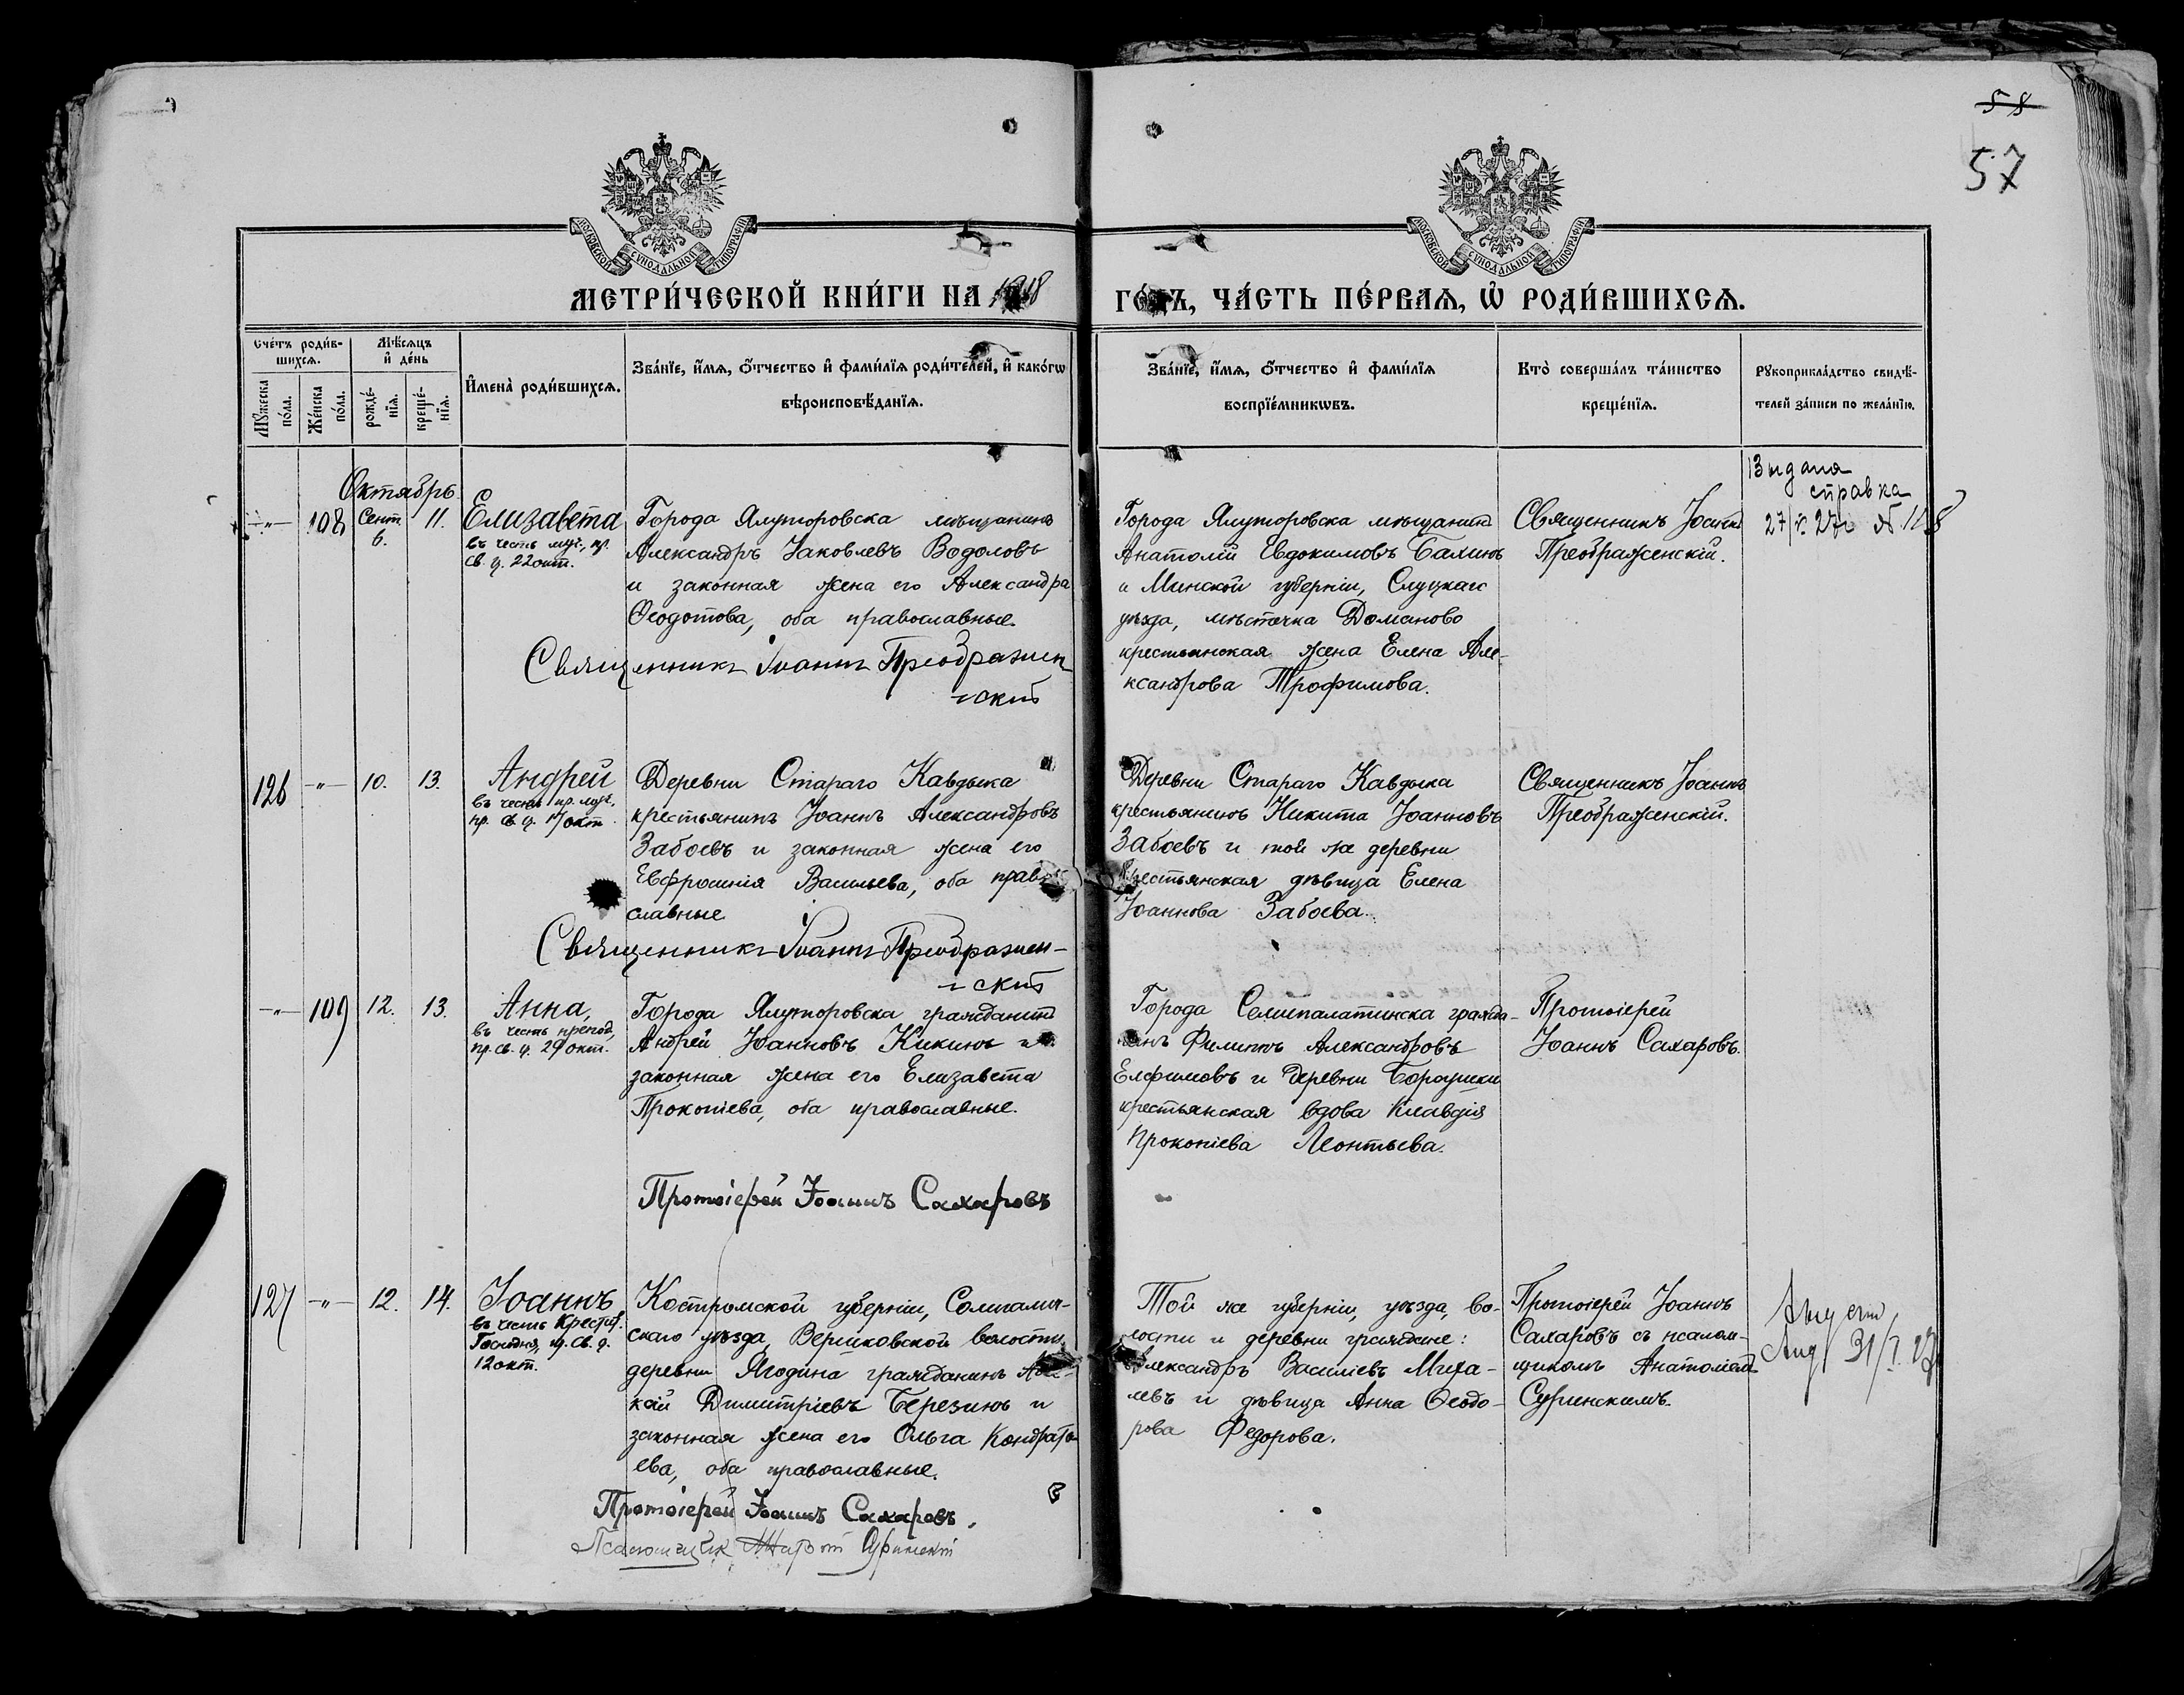 58
57
МОСКОВСКОЙ СѴНОДАЛЬНОЙ ТИПОГРАФІИ
МОСКОВСКОЙ СѴНОДАЛЬНОЙ ТИПОГРАФІИ
МЕТРИ́ЧЕСКОЙ КНИ́ГИ НА 1918 ГО́ДЪ, ЧА́СТЬ ПЕ́РВАѦ, Ѽ РОДИ́ВШИХСѦ.
Сче́тъ роди́в-
шихсѧ.
Мꙋ́жеска по́ла.
Же́нска по́ла.
Мѣ́сѧцъ и҆ де́нь
рожде́-нїѧ.
креще́-нїѧ.
И҆мена̀ роди́вшихсѧ.
Зва́нїе, и҆́мѧ, ѻ҆́тчество и҆ фами́лїѧ роди́телей, и҆ како́гѡ
вѣроисповѣ́данїѧ.
Зва́нїе, и҆́мѧ, ѻ҆́тчество и҆ фами́лїѧ
воспрїе́мникѡвъ.
Кто̀ соверша́лъ та́инство
креще́нїѧ.
Рꙋкоприкла́дство свидѣ́-
телей за́писи по жела́нїю.
Октябрь
-"- 108 Сент. 6. 11.
Елизавета
въ честь муч., пр.
св. ц. 22 окт.
Города Ялуторовска мѣщанинъ
Александръ Іаковлевъ Водоловъ
и законная жена его Александра
Ѳеодотова, оба православные.
Священникъ Іоаннъ Преображен-
скій
Города Ялуторовска мѣщанинъ
Анатолій Евдокимовъ Бахинъ
и Минской губерніи, Слуцкаго
уѣзда, мѣстечка Доманово
крестьянская жена Елена Але-
ксандрова Трофимова.
Священникъ Іоаннъ
Преображенскій.
Выдана
справка
126 -"- 10. 13.
Андрей
въ честь пр. муч.,
пр. св. ц. 17 окт.
Деревни Стараго Кавдыка
крестьянинъ Іоаннъ Александровъ
Забоевъ и законная жена его
Евфросинія Васильева, оба право-
славные
Священникъ Іоаннъ Преображен-
скій
Деревни Стараго Кавдыка
крестьянинъ Никита Іоанновъ
Забоевъ и той же деревни
крестьянская дѣвица Елена
Іоаннова Забоева.
Священникъ Іоаннъ
Преображенскій.
-"- 109 12. 13.
Анна,
въ честь препод.,
пр. св. ц. 29 окт.
Города Ялуторовска гражданинъ
Андрей Іоанновъ Кикинъ и
законная жена его Елизавета
Прокопіева, оба православные.
Протоіерей Іоаннъ Сахаровъ
Города Семипалатинска гражда-
нинъ Филиппъ Александровъ
Елфимовъ и деревни
крестьянская вдова Клавдія
Прокопіева Леонтьева.
Протоіерей
Іоаннъ Сахаровъ.
127 -"- 12. 14.
Іоаннъ,
въ честь Крестит.
Господня, пр. св. ц.
12 окт.
Костромской губерніи, Солигалич-
скаго уѣзда, Верховской волости
деревни Ягодина гражданинъ
Димитріевъ Березинъ и
законная жена его Ольга Кондрать-
ева, оба православные.
Протоіерей Іоаннъ Сахаровъ.
Псаломщик
Той же губерніи, уѣзда, во-
лости и деревни граждане:
Александръ Василіевъ Миха-
левъ и дѣвица Анна Ѳеодо-
рова Федорова.
Протоіерей Іоаннъ
Сахаровъ съ псалом-
щикомъ Анатоліемъ
31/I. 27